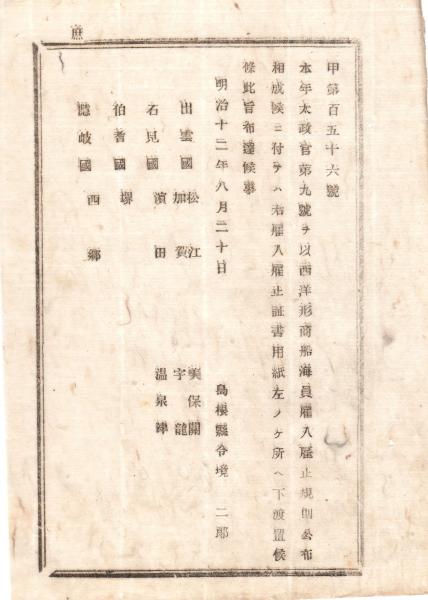 庶
甲第百五十六號
本年太政官第九號ヲ以西洋形商船海員雇入雇止規則公布
相成候ニ付テハ右雇入雇止証書用紙左ノケ所ヘ下渡置候
條此旨布達候事
明治十二年八月二十日
島根縣令境 二郎
出雲國 松江 美保關
加賀 宇龍
石見國 濱田 溫泉津
伯耆國 堺
隱岐國 西鄉